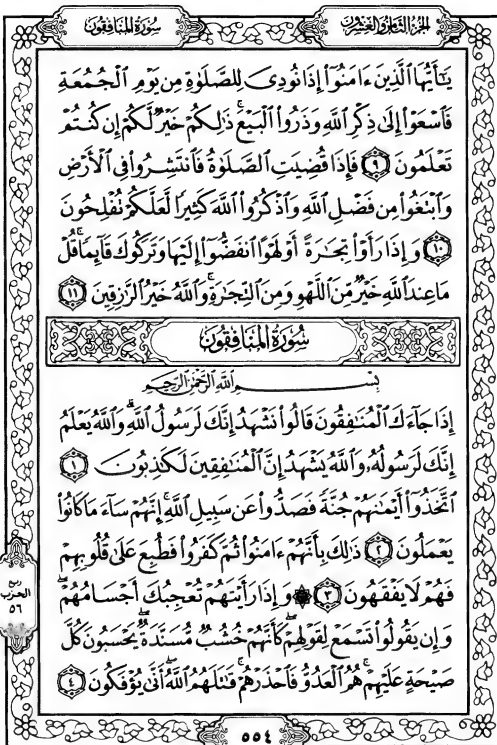 الجزء الثامن والعشرون
سورة المنافقون
يَـٰٓأَيُّهَا ٱلَّذِينَ ءَامَنُوٓا۟ إِذَا نُودِىَ لِلصَّلَوٰةِ مِن يَوْمِ ٱلْجُمُعَةِ
فَٱسْعَوْا۟ إِلَىٰ ذِكْرِ ٱللَّهِ وَذَرُوا۟ ٱلْبَيْعَ ۚ ذَٰلِكُمْ خَيْرٌ لَّكُمْ إِن كُنتُمْ
تَعْلَمُونَ ٩ فَإِذَا قُضِيَتِ ٱلصَّلَوٰةُ فَٱنتَشِرُوا۟ فِى ٱلْأَرْضِ
وَٱبْتَغُوا۟ مِن فَضْلِ ٱللَّهِ وَٱذْكُرُوا۟ ٱللَّهَ كَثِيرًا لَّعَلَّكُمْ تُفْلِحُونَ
١٠ وَإِذَا رَأَوْا۟ تِجَـٰرَةً أَوْ لَهْوًا ٱنفَضُّوٓا۟ إِلَيْهَا وَتَرَكُوكَ قَآئِمًا ۚ قُلْ
مَا عِندَ ٱللَّهِ خَيْرٌ مِّنَ ٱللَّهْوِ وَمِنَ ٱلتِّجَـٰرَةِ ۚ وَٱللَّهُ خَيْرُ ٱلرَّٰزِقِينَ ١١
سُورَةُ المُنَافِقُونَ
بِسْمِ ٱللَّهِ ٱلرَّحْمَـٰنِ ٱلرَّحِيمِ
إِذَا جَآءَكَ ٱلْمُنَـٰفِقُونَ قَالُوا۟ نَشْهَدُ إِنَّكَ لَرَسُولُ ٱللَّهِ ۗ وَٱللَّهُ يَعْلَمُ
إِنَّكَ لَرَسُولُهُۥ وَٱللَّهُ يَشْهَدُ إِنَّ ٱلْمُنَـٰفِقِينَ لَكَـٰذِبُونَ ١
ٱتَّخَذُوٓا۟ أَيْمَـٰنَهُمْ جُنَّةً فَصَدُّوا۟ عَن سَبِيلِ ٱللَّهِ ۚ إِنَّهُمْ سَآءَ مَا كَانُوا۟
يَعْمَلُونَ ٢ ذَٰلِكَ بِأَنَّهُمْ ءَامَنُوا۟ ثُمَّ كَفَرُوا۟ فَطُبِعَ عَلَىٰ قُلُوبِهِمْ
فَهُمْ لَا يَفْقَهُونَ ٣ ۞ وَإِذَا رَأَيْتَهُمْ تُعْجِبُكَ أَجْسَامُهُمْ ۖ
وَإِن يَقُولُوا۟ تَسْمَعْ لِقَوْلِهِمْ ۖ كَأَنَّهُمْ خُشُبٌ مُّسَنَّدَةٌ ۖ يَحْسَبُونَ كُلَّ
صَيْحَةٍ عَلَيْهِمْ ۚ هُمُ ٱلْعَدُوُّ فَٱحْذَرْهُمْ ۚ قَـٰتَلَهُمُ ٱللَّهُ ۖ أَنَّىٰ يُؤْفَكُونَ ٤
ربع
الحزب
٥٦
٥٥٤